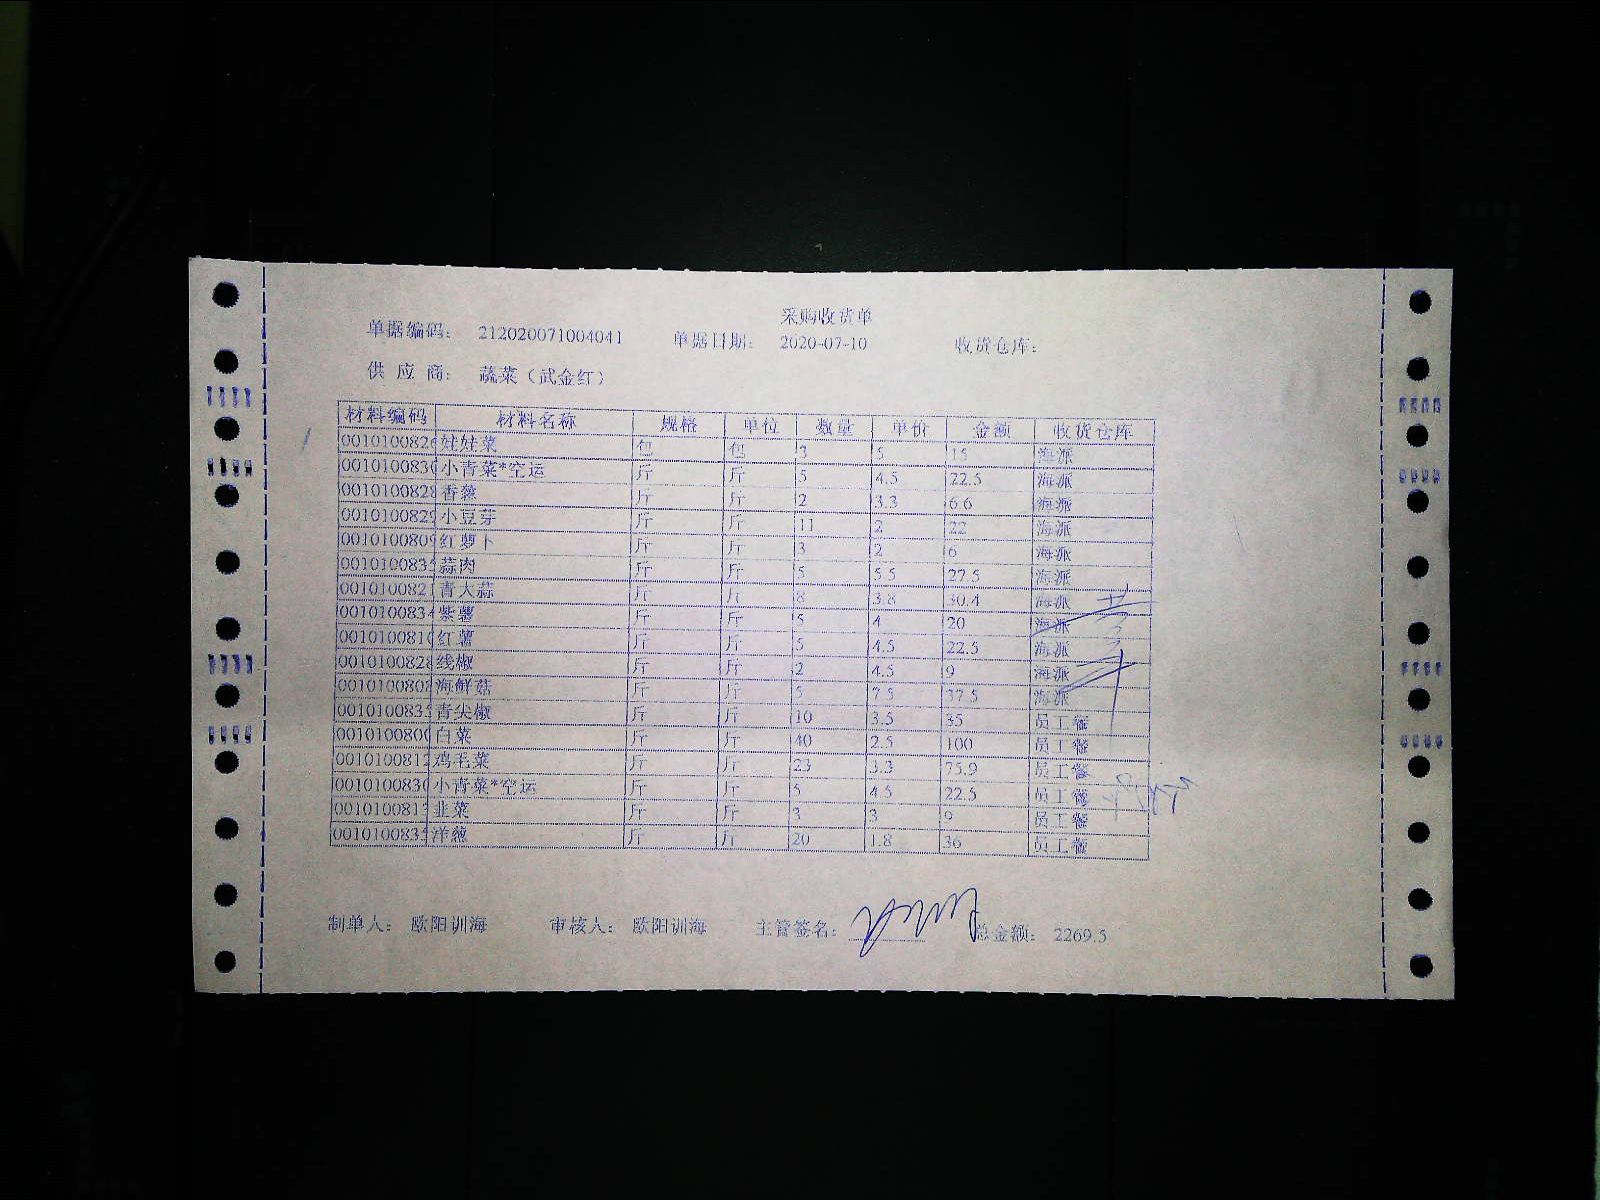 采购收货单
单据编码： 212020071004041 单据日期： 2020-07-10 收货仓库：
供 应 商： 蔬菜（武金红）
材料编码 材料名称 规格 单位 数量 单价 金额 收货仓库
001010082 娃娃菜 包 包 3 5 15 海派
001010083 小青菜*空运 斤 斤 5 4.5 22.5 海派
001010082 香菜 斤 斤 2 3.3 6.6 海派
001010082 小豆芽 斤 斤 11 2 22 海派
001010080 红萝卜 斤 斤 3 2 6 海派
001010083 蒜肉 斤 斤 5 5.5 27.5 海派
001010082 青大蒜 斤 斤 8 3.8 30.4 海派
001010083 紫薯 斤 斤 5 4 20 海派
001010081 红薯 斤 斤 5 4.5 22.5 海派
001010082 线椒 斤 斤 2 4.5 9 海派
001010080 海鲜菇 斤 斤 5 7.5 37.5 海派
001010083 青尖椒 斤 斤 10 3.5 35 员工餐
001010080 白菜 斤 斤 40 2.5 100 员工餐
001010081 鸡毛菜 斤 斤 23 3.3 75.9 员工餐
001010083 小青菜*空运 斤 斤 5 4.5 22.5 员工餐
001010081 韭菜 斤 斤 3 3 9 员工餐
001010083 洋葱 斤 斤 20 1.8 36 员工餐
制单人： 欧阳训海 审核人： 欧阳训海 主管签名： 总金额： 2269.5